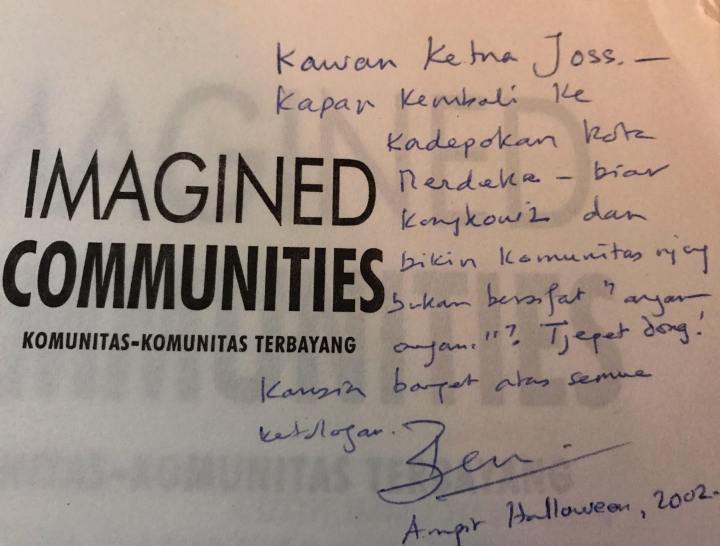 Kawan Ketua Joss. —
Kapan Kembali Ke
Kadepokan Kota
Merdeka — biar
Kongkowiz dan
bikin Komunitas njang
bukan bersifat "angan-
angan."? Tjepet dong!
Kamsia banget atas semua
Ben
Ampir Halloween, 2002.
IMAGINED
COMMUNITIES
KOMUNITAS-KOMUNITAS TERBAYANG